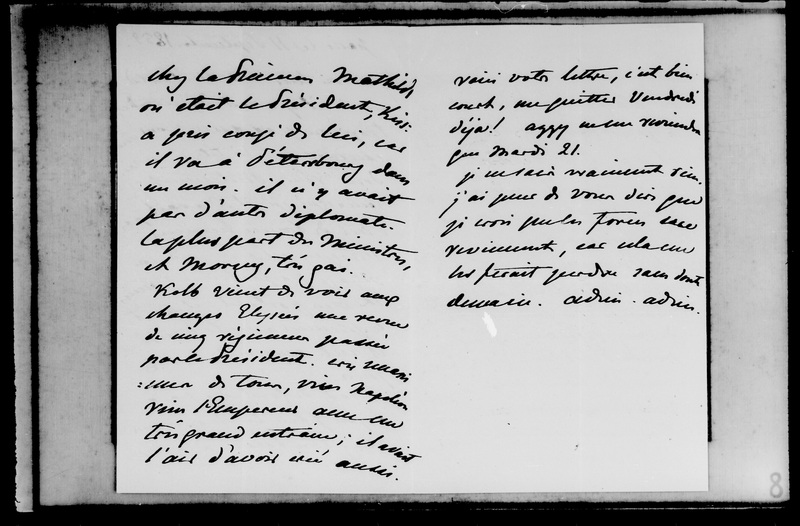 chez la Princesse Mathilde,
où était le Président, Kiss:
a pris congé de lui, car
il va à Pétersbourg dans
un mois. il n'y avait
pas d'autre diplomate.
la plus part des Ministres,
et Morny, très gai.
Kolb vient de voir aux
champs Elysées une revue
de cinq régimens passée
par le Président. cris unani
:mes de tous, vive Napoléon
vive l'Empereur avec un
très grand entrain; il avait
l'air d'avoir crié aussi.
voici votre lettre, c'est bien
court, me quitter Vendredi
déjà! Aggy ne me reviendra
que Mardi 21.
je ne sais vraiment rien.
j'ai peur de vous dire que
je crois que les forces me
reviennent, car cela me
les ferait perdre sans doute
demain. adieu. adieu.
8